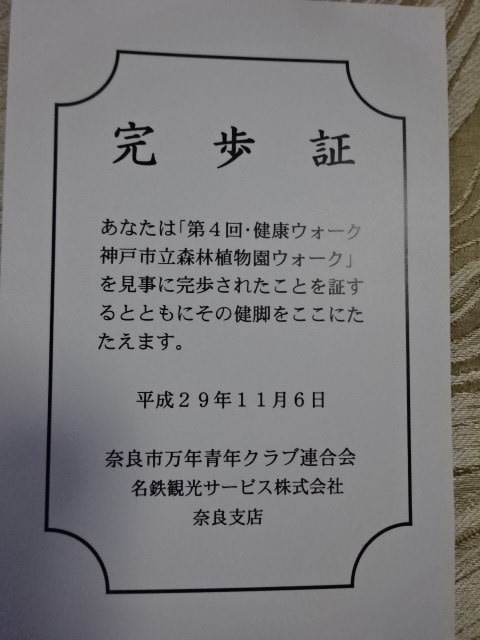 完歩証
あなたは「第４回・健康ウォーク
神戸市立森林植物園ウォーク」
を見事に完歩されたことを証す
るとともにその健脚をここにた
たえます。
平成２９年１１月６日
奈良市万年青年クラブ連合会
名鉄観光サービス株式会社
奈良支店